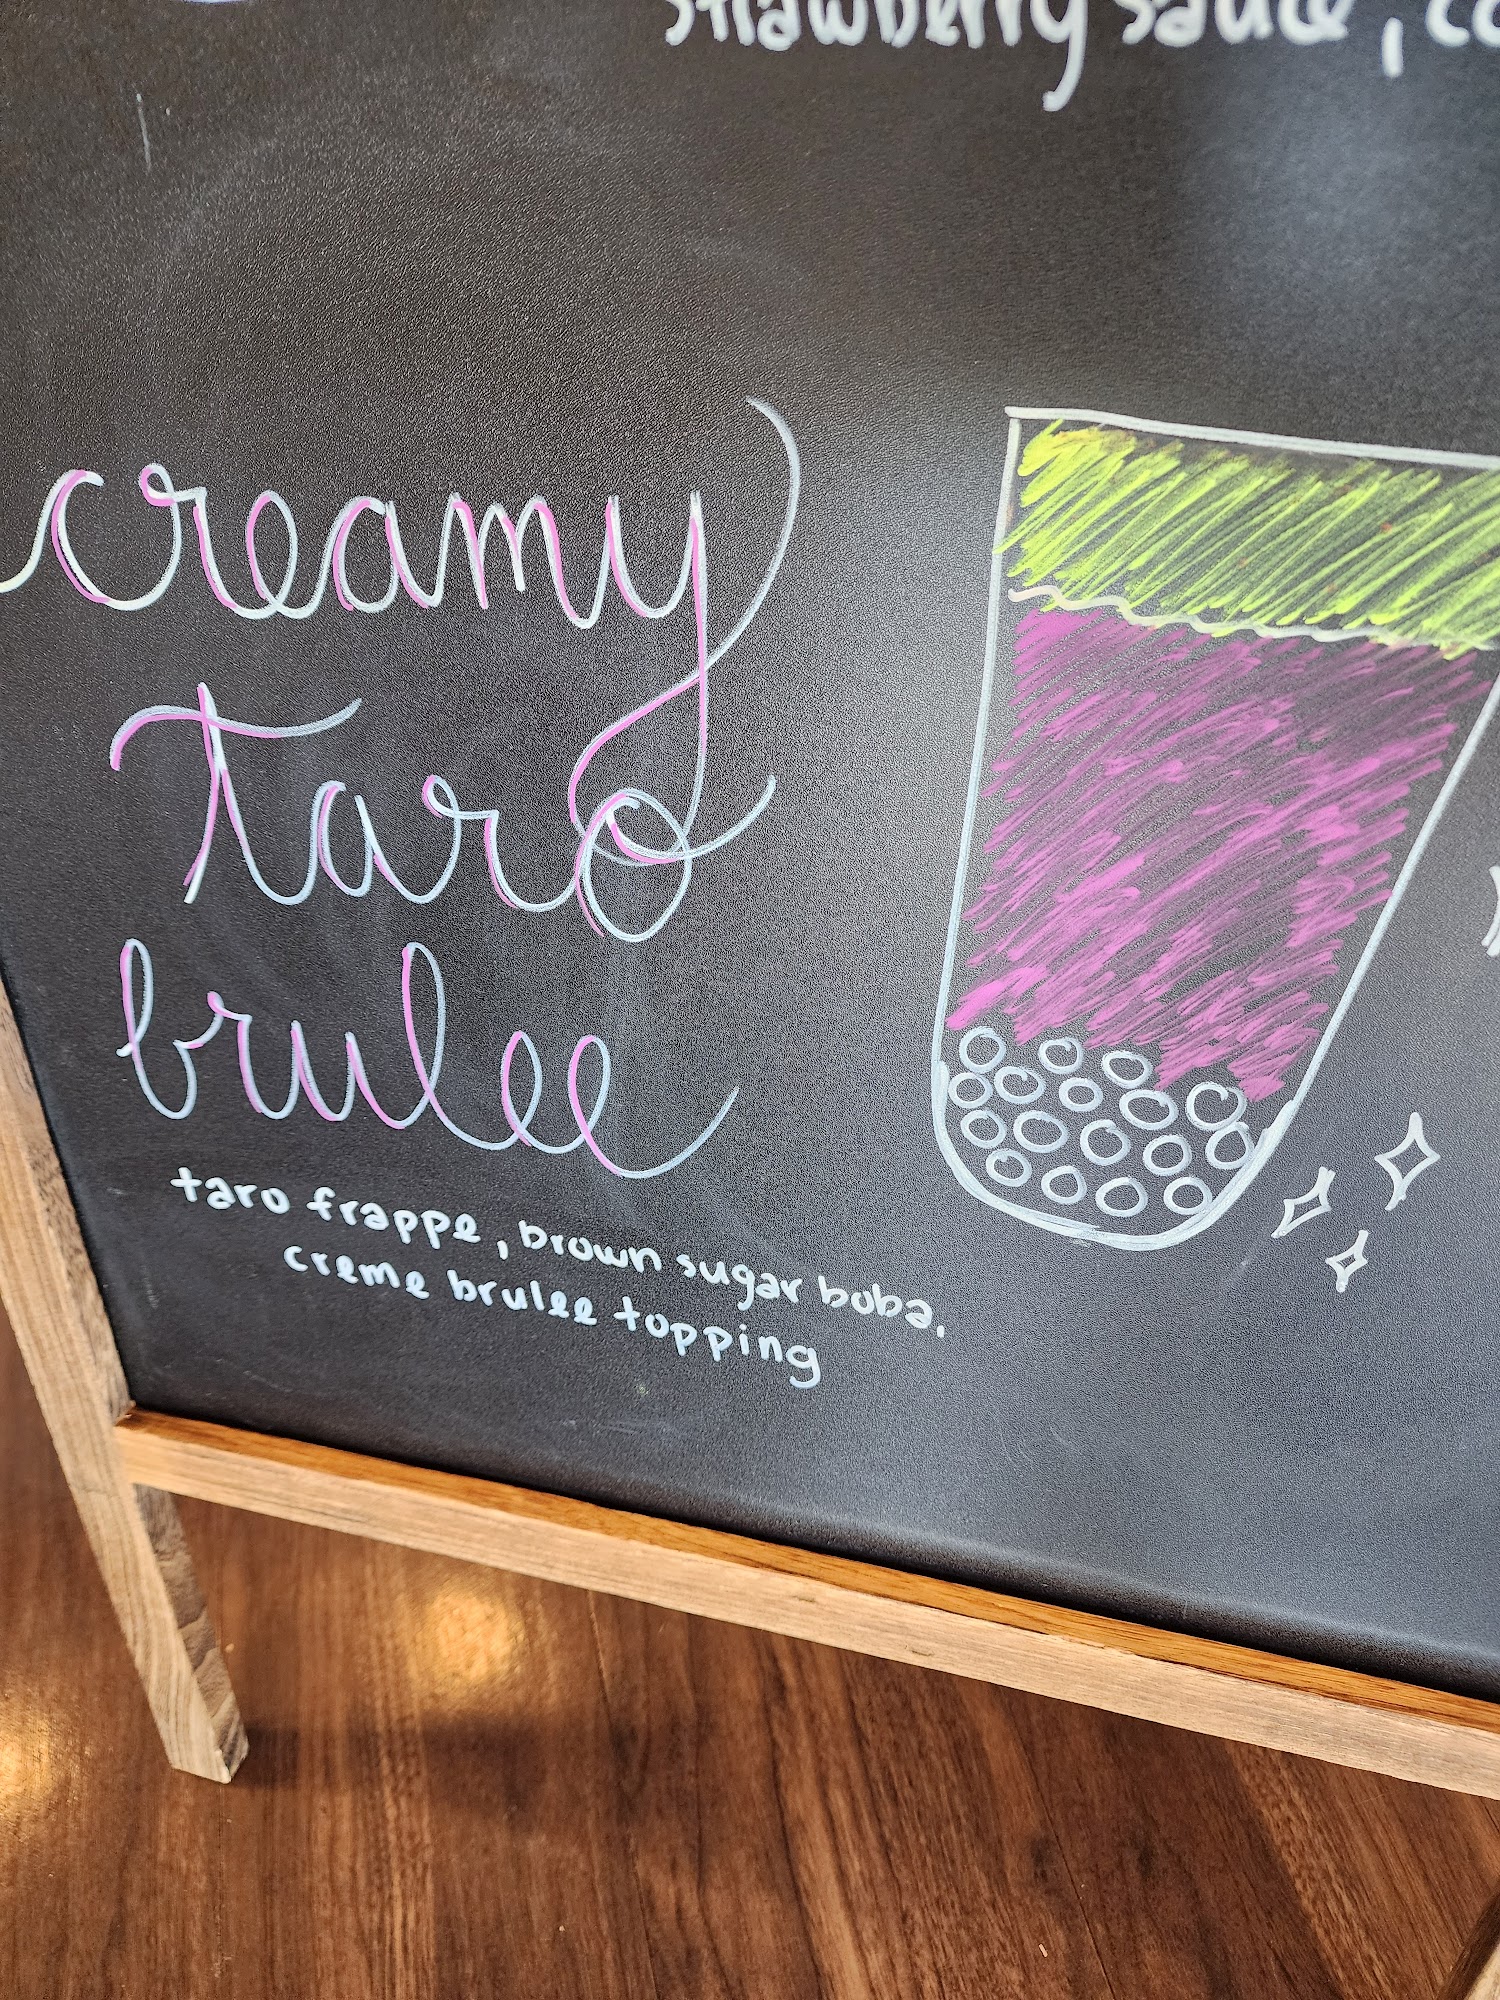 strawberry sauce, co
creamy
taro
brulee
taro frappe, brown sugar boba,
creme brulee topping